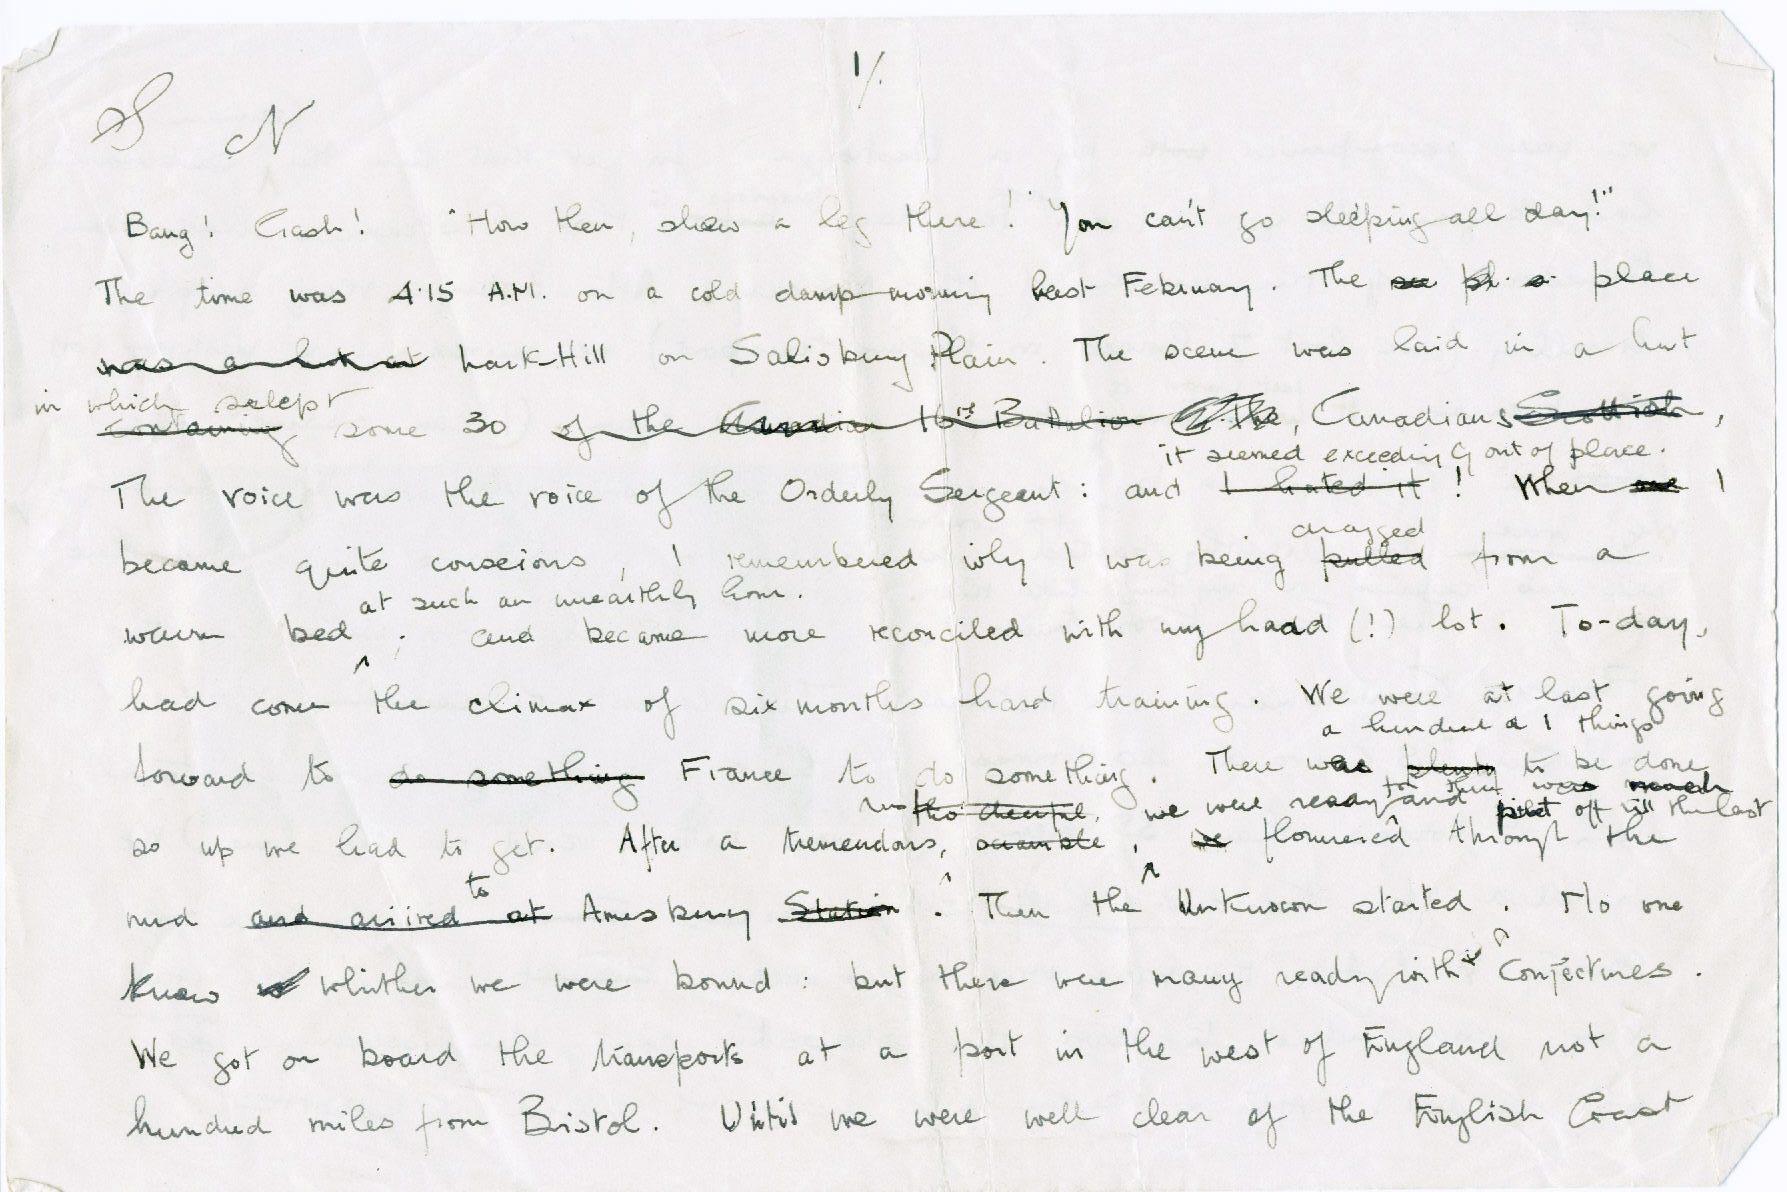 1/.
S N
Bang! Crash! "How then, show a leg there! You can't go sleeping all day!"
The time was 4.15 A.M. on a cold damp morning last February. The place
was a hut at Lark-Hill on Salisbury Plain. The scene was laid in a hut
in which slept
containing some 30 of the Canadian 16th Battalion The, Canadians Scottish,
it seemed exceedingly out of place.
The voice was the voice of the Orderly Sergeant: and I hated it! When I
dragged
became quite conscious, I remembered why I was being pulled from a
at such an unearthly hour.
warm bed; and became more reconciled with my haad (!) lot. To-day,
had come the climax of six months hard training. We were at last going
a hundred & 1 things
forward to do something France to do something. There was plenty to be done
we were ready and put off till the last
so up we had to get. After a tremendous, scramble, we floundered through the
to
mud and arrived at Amesbury Station. Then the Unknown started. No one
knew whither we were bound: but there were many ready with conjectures.
We got on board the transports at a port in the west of England not a
hundred miles from Bristol. Until we were well clear of the English Coast